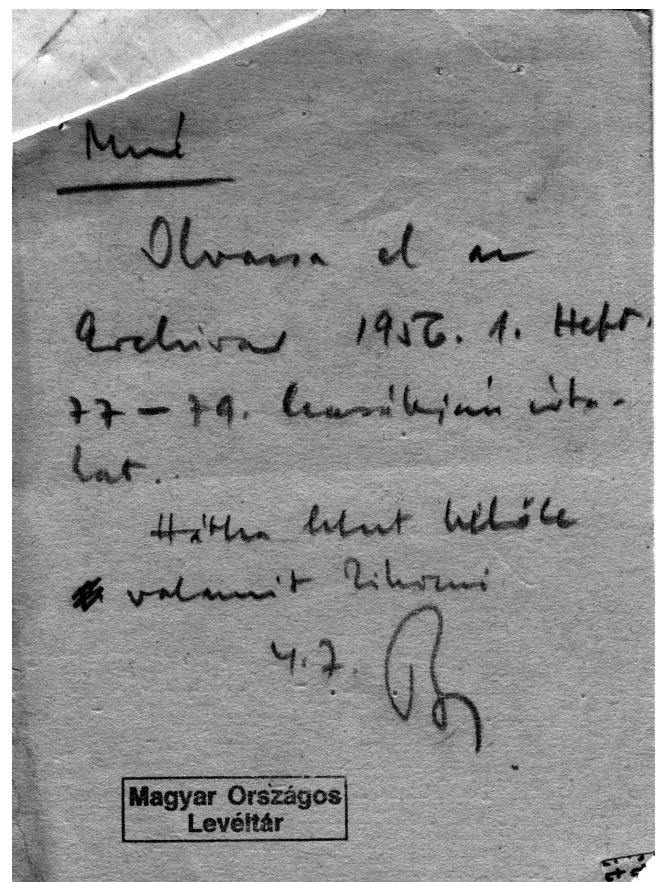 Olvassa el az
Archivar 1956. 1. Heft.
77 – 79. hasábjain írta-
kat.
Hátha lehet belőle
valamit
4.7.
Magyar Országos
Levéltár